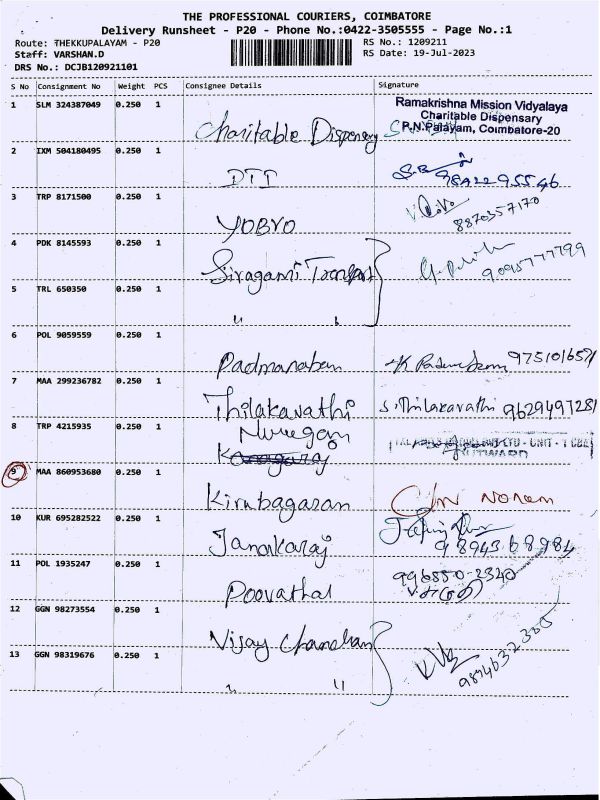 THE PROFESSIONAL COURIERS, COIMBATORE
Delivery Runsheet - P20 - Phone No.:0422-3505555 - Page No.:1
Route: THEKKUPALAYAM - P20 RS No.: 1209211
Staff: VARSHAN.D RS Date: 19-Jul-2023
DRS No.: DCJB120921101
S No Consignment No Weight PCS Consignee Details Signature
1 SLM 324387049 0.250 1 Charitable Dispensary
Ramakrishna Mission Vidyalaya
Charitable Dispensary
P.N.Palayam, Coimbatore-20
2 IXM 504180495 0.250 1 DTI 9842295546
3 TRP 8171500 0.250 1 YOBYO 8870357170
4 PDK 8145593 0.250 1 Siragami Transport 9095777799
5 TRL 650350 0.250 1 " "
6 POL 9059559 0.250 1 Padmanaban
7 MAA 299236782 0.250 1 Thilakavathi S. Thilakavathi 9629497281
8 TRP 4215935 0.250 1 Murugan
9 MAA 860953680 0.250 1 Kirubagaran
10 KUR 695282522 0.250 1 Janakaraj 9894368984
11 POL 1935247 0.250 1 Poovathal 996550-2340
12 GGN 98273554 0.250 1 Vijay Chandran
13 GGN 98319676 0.250 1 " " 9894632305